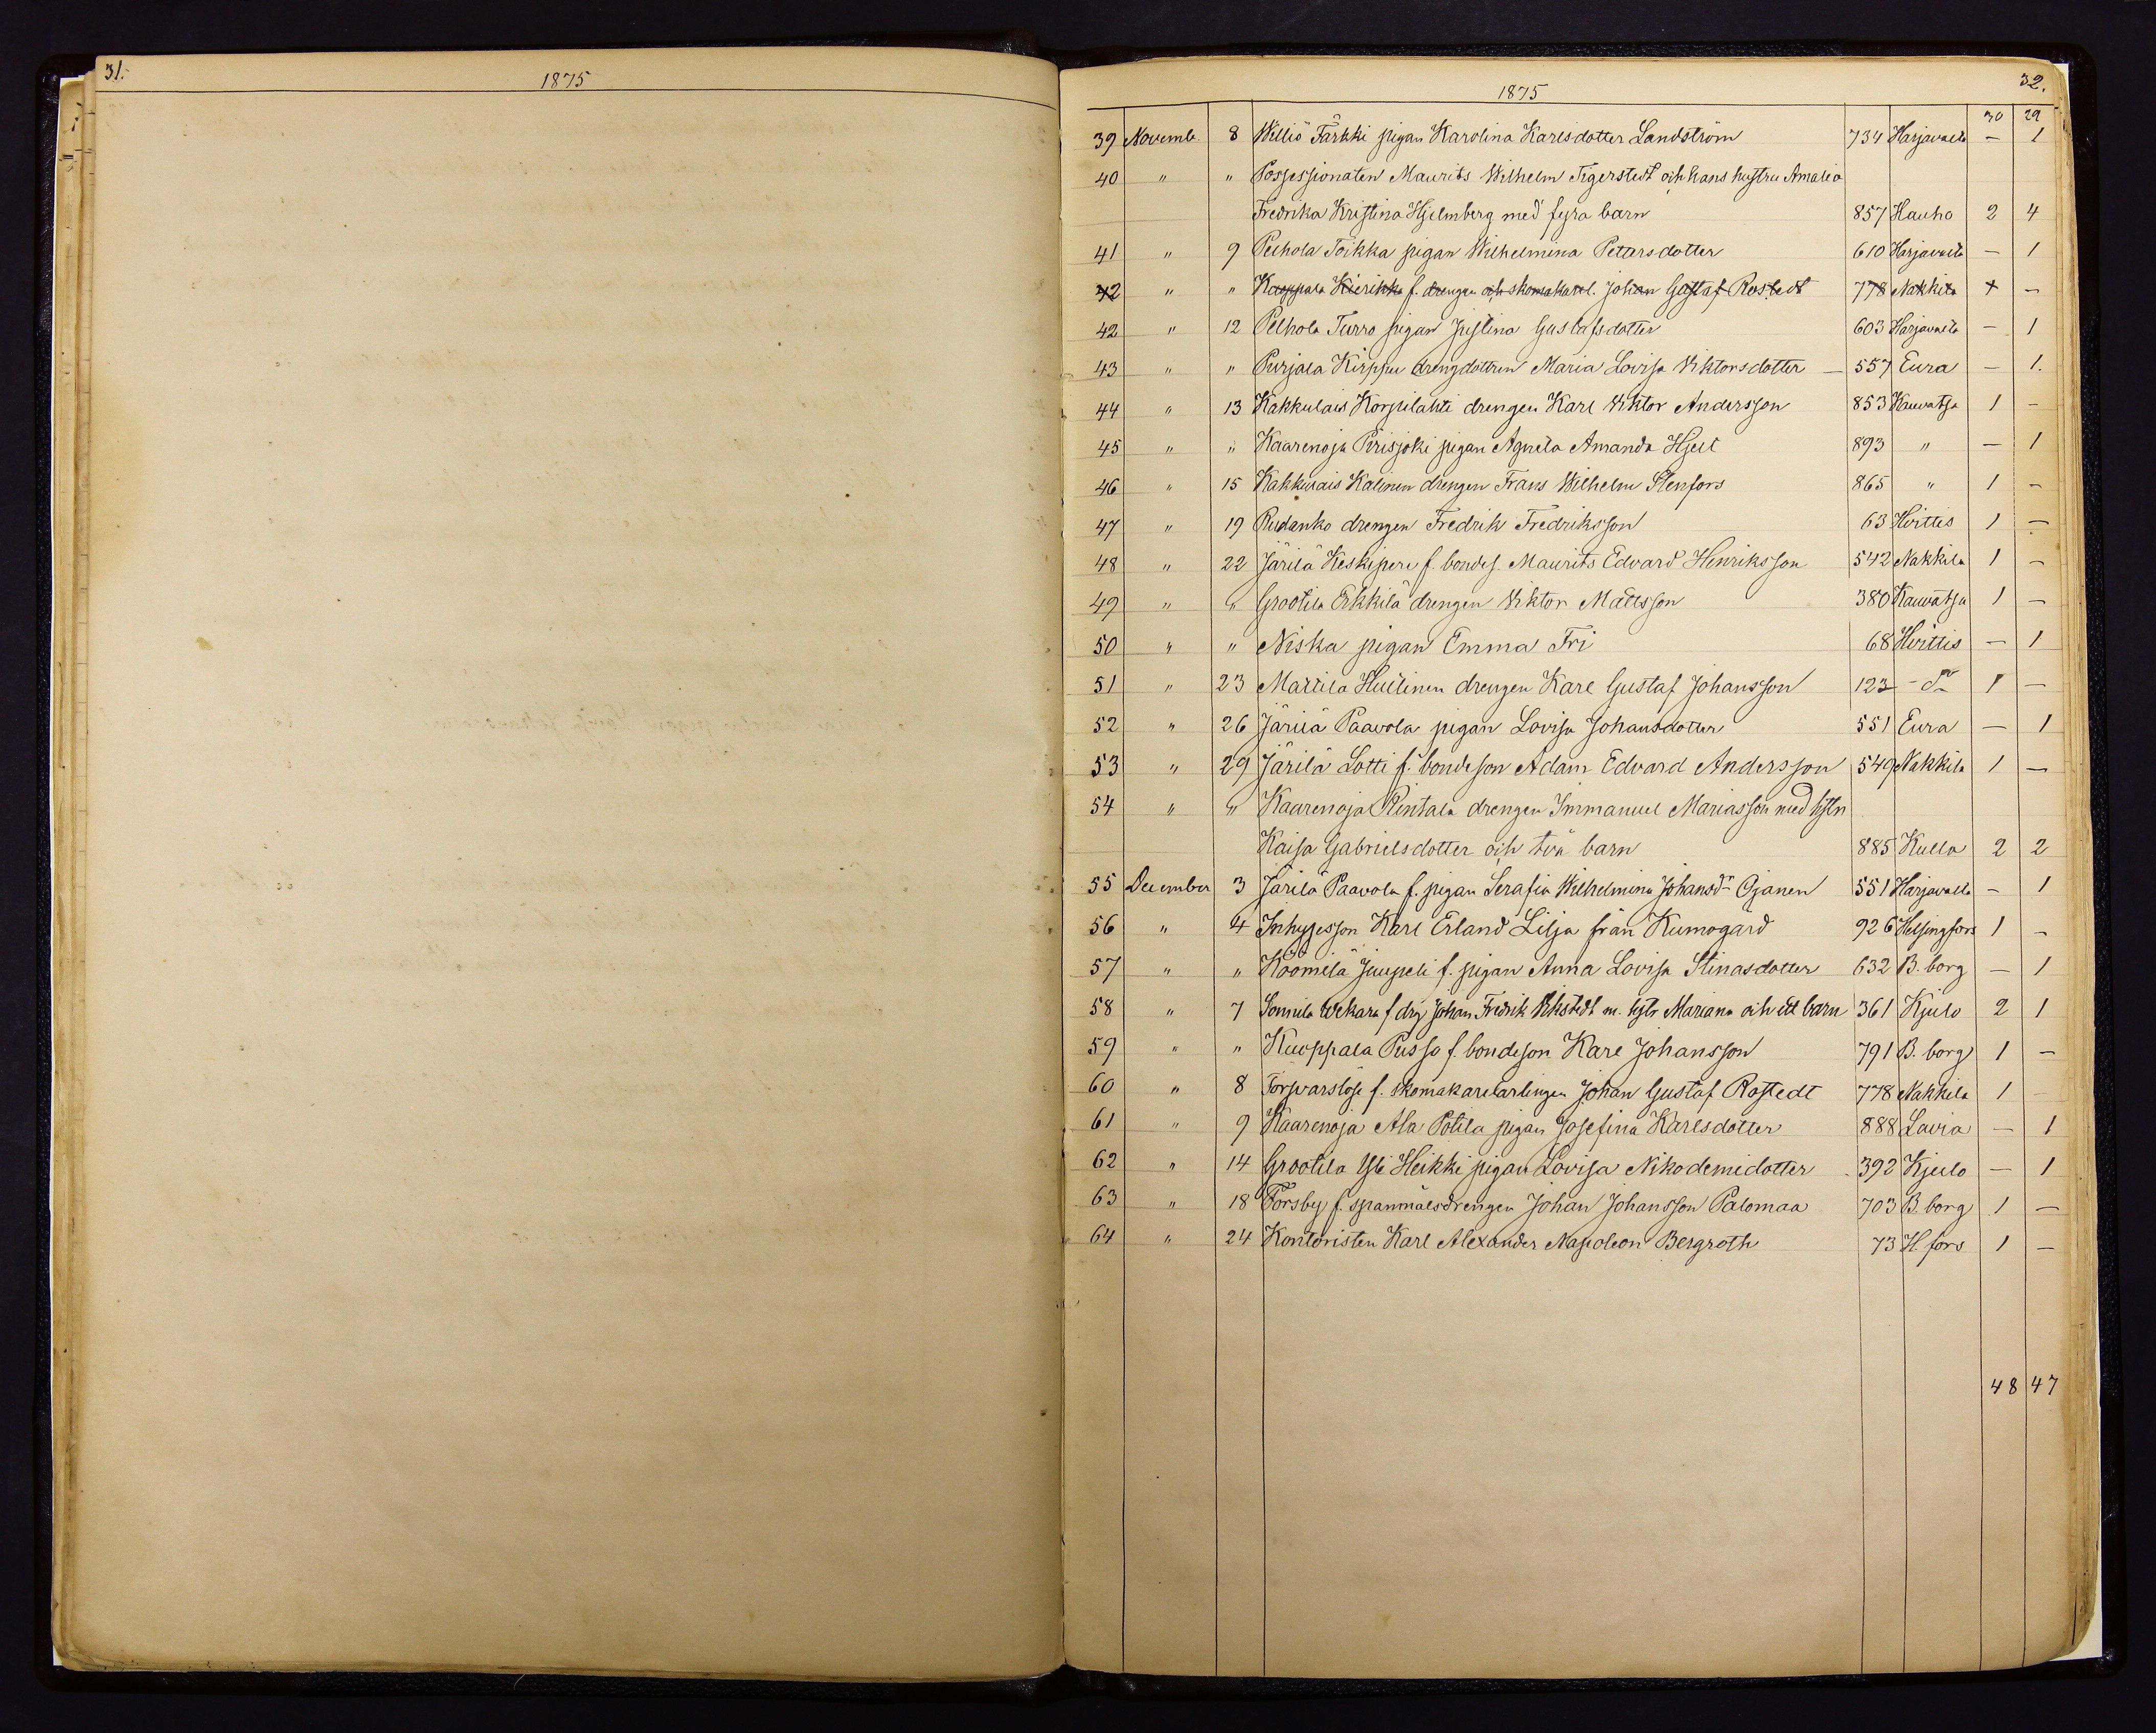 31.
1875
1875
32.
30 29
39 Novemb. 8 Williö Färkki pigan Karolina Karlsdotter Landström 734 Harjavalta — 1
40 " " Possessionaten Maurits Wilhelm Tigerstedt och hans hustru Amalia
Fredrika Kristina Hjelmberg med fyra barn 857 Hauho 2 4
41 " 9 Pelhola Toikka pigan Wilhelmina Petersdotter 610 Harjavalta — 1
42 " " Kuoppala Kierikka f. drengen och skomakarel. Johan Gustaf Rostedt 778 Nakkila 1 —
42 " 12 Pelhola Turro pigan Justina Gustafsdotter 603 Harjavalta — 1
43 " " Purjala Kirppu drengdottren Maria Lovisa Viktorsdotter — 557 Eura — 1.
44 " 13 Kakkulais Korpilahti drengen Karl Viktor Andersson 853 Kauvatsa 1 —
45 " " Kaarenoja Pirisjoki pigan Agneta Amanda Hjelt 893 " — 1
46 " 15 Kakkulais Kalinen drengen Frans Wilhelm Stenfors 865 " 1 —
47 " 19 Rudanko drengen Fredrik Fredriksson 63 Hvittis 1 —
48 " 22 Järilä Keskipere f. bondes. Maurits Edvard Henriksson 542 Nakkila 1 —
49 " " Grootila Erkkilä drengen Viktor Mattsson 380 Kauvatsa 1 —
50 " " Niska pigan Emma Fri 68 Hvittis — 1
51 " 23 Mattila Huilinen drengen Karl Gustaf Johansson 123 — d:o 1 —
52 " 26 Järilä Paavola pigan Lovisa Johansdotter 551 Eura — 1
53 " 29 Järilä Lotti f. bondeson Adam Edvard Andersson 549 Nakkila 1 —
54 " " Kaarenoja Rintala drengen Immanuel Mariasson med hstn
Kaisa Gabrielsdotter och två barn 885 Kulla 2 2
55 December 3 Järilä Paavola f. pigan Serafia Wilhelmina Johansdr Ojanen 551 Harjavalta — 1
56 " 4 Inhysesson Karl Erland Lilja från Kumogård 926 Helsingfors 1 —
57 " " Köömilä Juupeli f. pigan Anna Lovisa Stinasdotter 632 B. borg — 1
58 " 7 Sonnila Wekara f drg Johan Fredrik Vikstedt m. hstr Mariana och ett barn 361 Kjulo 2 1
59 " " Kuoppala Pusso f. bondeson Karl Johansson 791 B. borg 1 —
60 " 8 Försvarslöse f. skomakarelärlingen Johan Gustaf Rostedt 778 Nakkila 1 —
61 " 9 Kaarenoja Ala Potila pigan Josefina Karlsdotter 888 Lavia — 1
62 " 14 Grootila Yli Heikki pigan Lovisa Nikodemidotter 392 Kjulo — 1
63 " 18 Forsby f. spanmålsdrengen Johan Johansson Palomaa 703 B. borg 1 —
64 " 24 Kontoristen Karl Alexander Napoleon Bergroth 73 H. fors 1 —
48 47